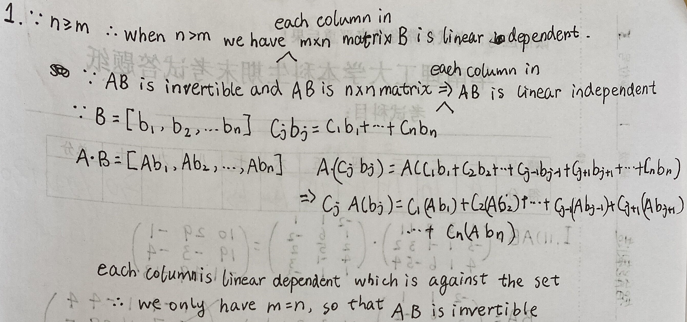 1. ∵ n≥m ∴ when n>m we have each column in m×n matrix B is linear dependent.
∵ AB is invertible and AB is n×n matrix ⇒ each column in AB is linear independent
∵ B = [b₁, b₂, ... bₙ] Cⱼbⱼ = C₁b₁+···+Cₙbₙ
A·B = [Ab₁, Ab₂, ..., Abₙ] A·(Cⱼ bⱼ) = A(C₁b₁+C₂b₂+···+Cⱼ₋₁bⱼ₋₁+Cⱼ₊₁bⱼ₊₁+···+Cₙbₙ)
⇒ Cⱼ A(bⱼ) = C₁(Ab₁)+C₂(Ab₂)+···+Cⱼ₋₁(Abⱼ₋₁)+Cⱼ₊₁(Abⱼ₊₁)
···+ Cₙ(Abₙ)
each column is linear dependent which is against the set
∴ we only have m=n, so that AB is invertible